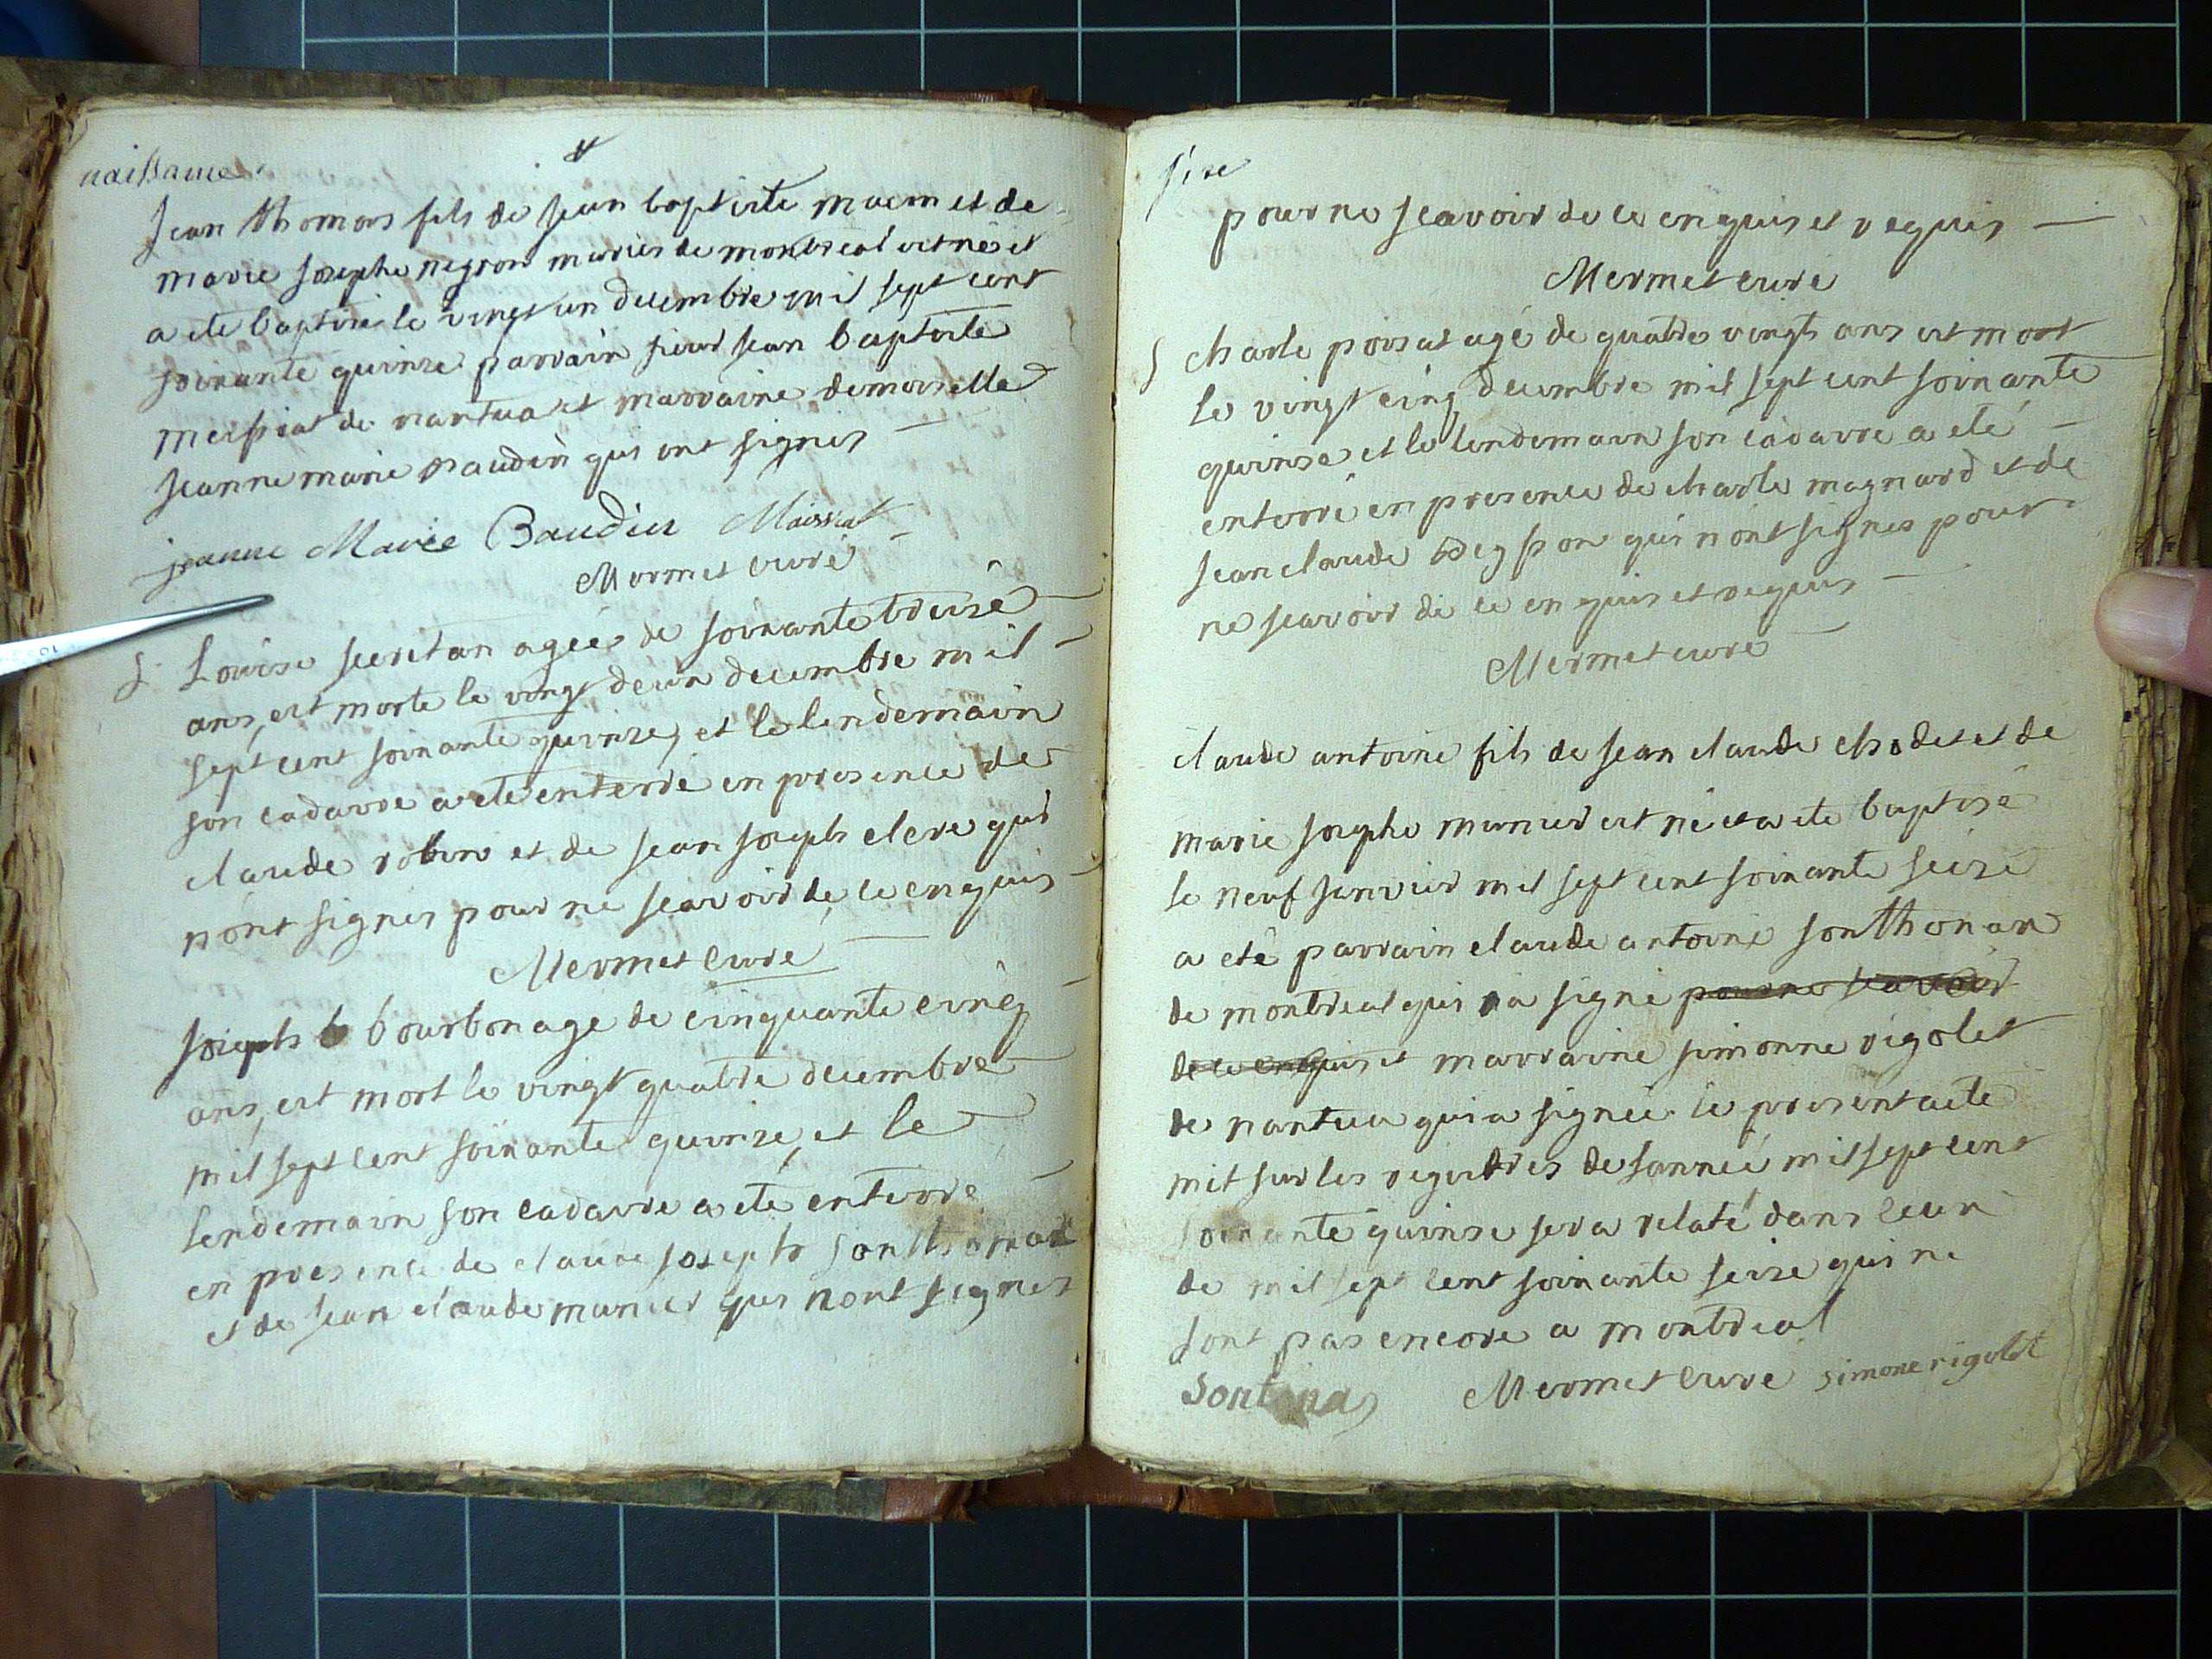 naissance
Jean thomas fils de jean baptiste maem et de
marie josephe negron mariés de montreal est né et
a ete baptisé le vingt un decembre mil sept cent
soixante quinze parrain sieur jean baptiste
meissiat de nantua et marraine demoiselle
jeanne marie baudin qui ont signés
jeanne Marie Baudin Maissiat
Mermet curé
Louise secretan agée de soixante treize
ans, est morte le vingt deux decembre mil
sept cent soixante quinze, et le lendemain
son cadavre a ete enterré en presence de
claude robin et de jean joseph clerc qui
n'ont signés pour ne scavoir de ce enquis
Mermet curé
joseph bourbon age de cinquante cinq
ans, est mort le vingt quatre decembre
mil sept cent soixante quinze, et le
lendemain son cadavre a eté enterré
en presence de claude joseph sonthonax
et de jean claude munier qui n'ont signés
pour ne scavoir de ce enquis et requis
Mermet curé
charle poisat agé de quatre vingt ans est mort
le vingt cinq decembre mil sept cent soixante
quinze et le lendemain son cadavre a eté
enterré en presence de charle magnard et de
jean claude qui n'ont signés pour
ne scavoir de ce enquis et requis
Mermet curé
claude antoine fils de jean claude chodet et de
marie josephe munier est né et a ete baptisé
le neuf janvier mil sept cent soixante seize
a eté parrain claude antoine sonthonax
de montreal qui a signé pour ne scavoir
de ce enquis et marraine simonne rigolet
de nantua qui a signée le present acte
mit sur les registres de l'année mil sept cent
soixante quinze sera relaté dans ceux
de mil sept cent soixante seize qui ne
sont pas encore a montreal
Sontona Mermet curé simone rigolet